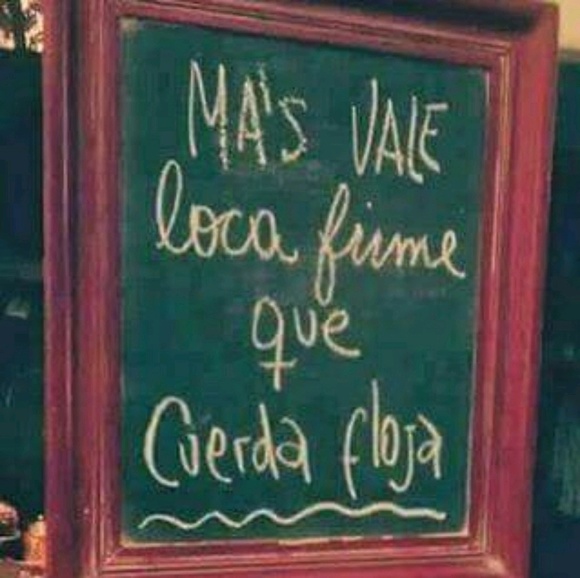 MÁ'S VALE
loca firme
que
Cuerda floja